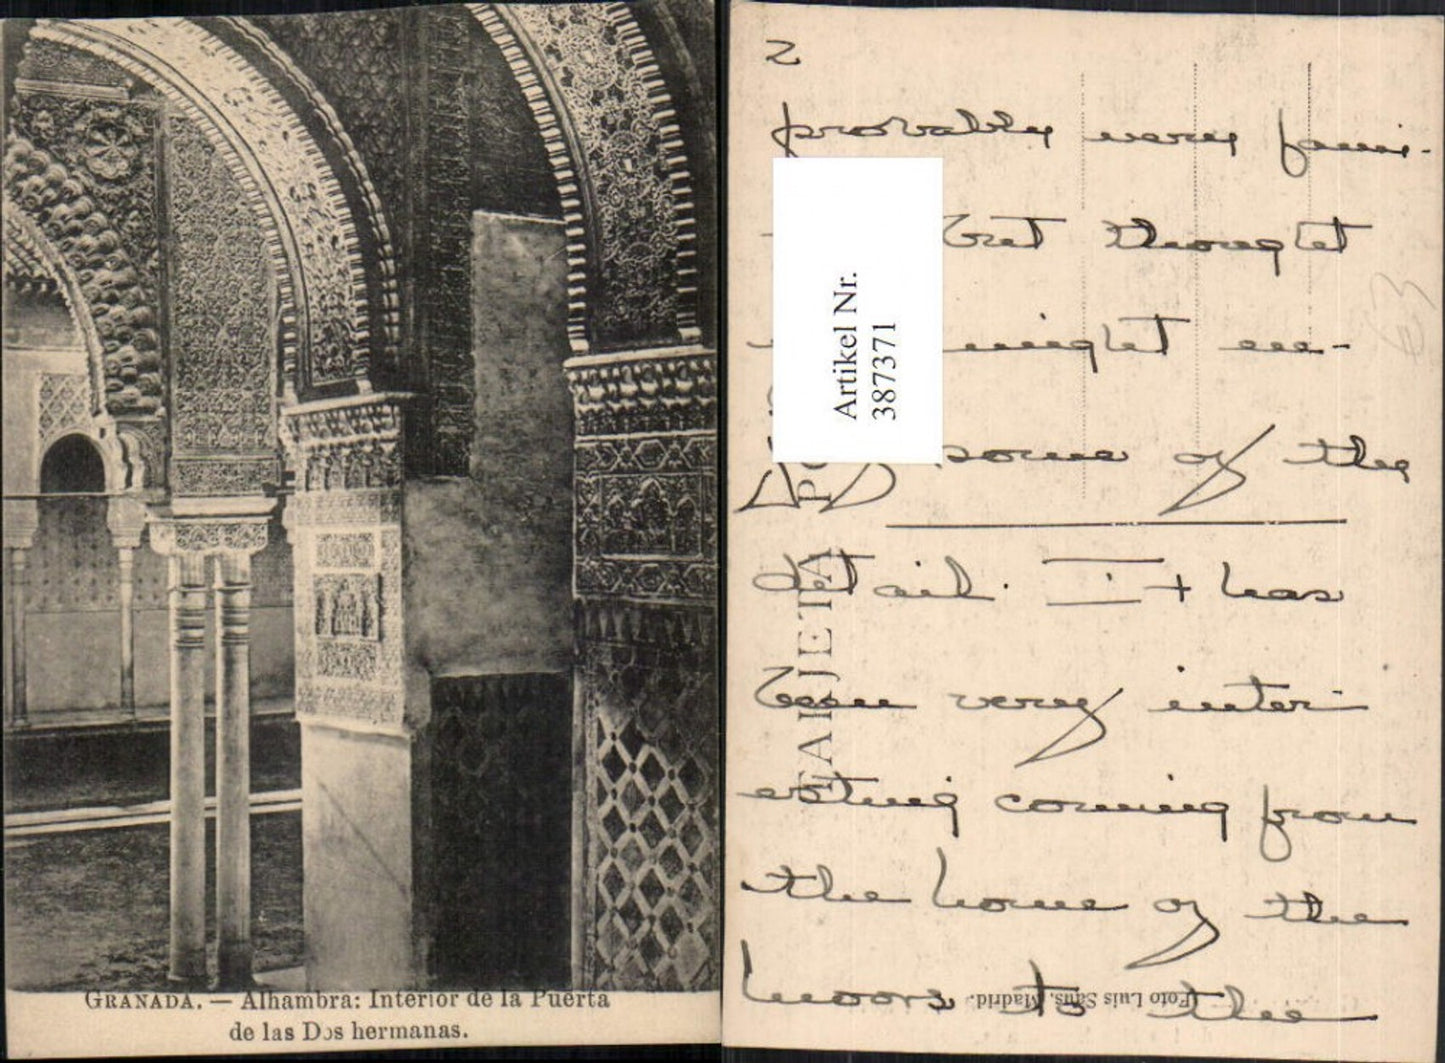 GRANADA. — Alhambra: Interior de la Puerta
de las Dos hermanas.
2
probably very fami-
but thought
might en-
some of the
detail. It has
been very inter-
esting coming from
the home of the
moors to the
Artikel Nr.
387371
63
TARJETA PO
(Foto Luis Saus, Madrid.